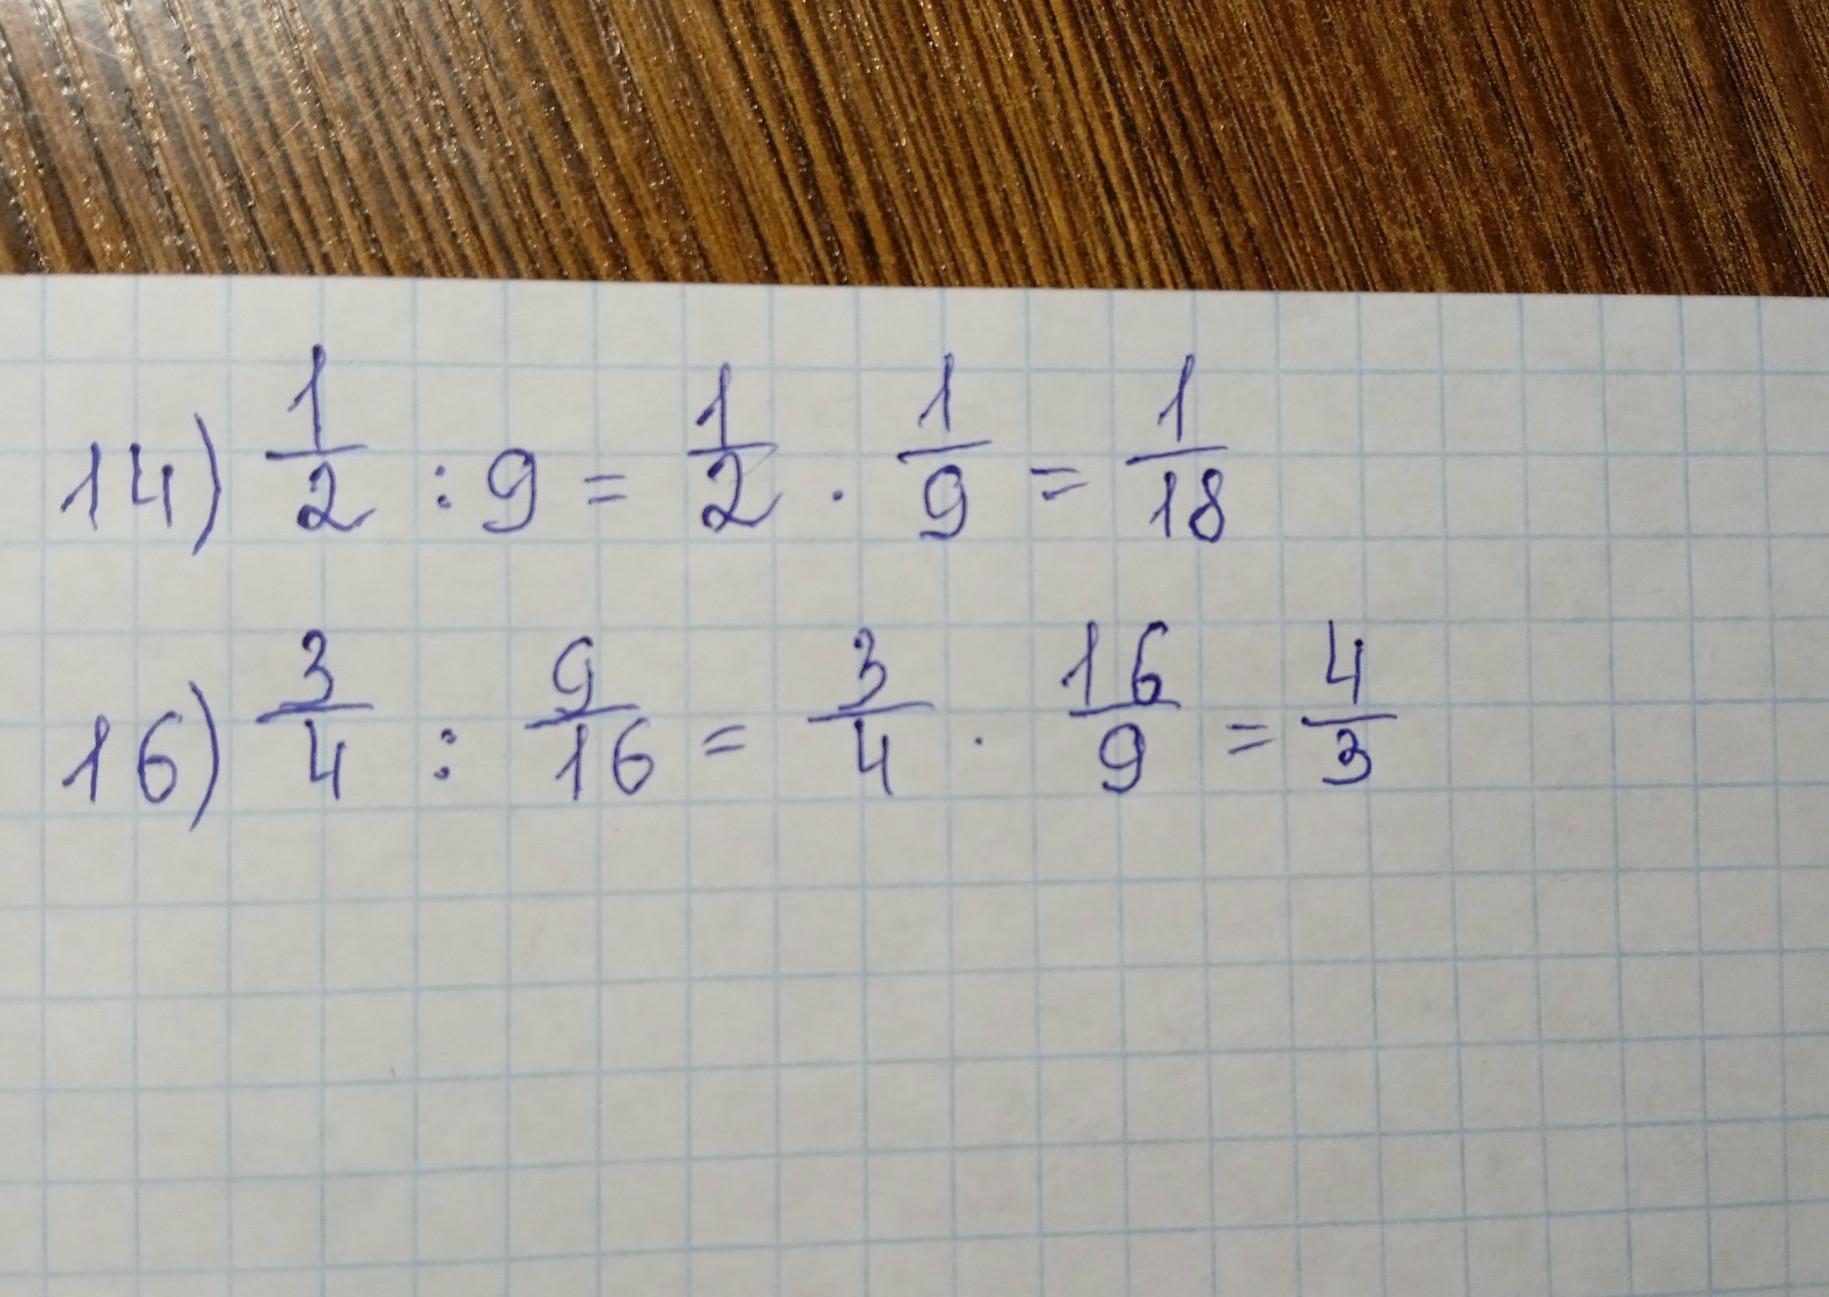 14) 1/2 : 9 = 1/2 · 1/9 = 1/18
16) 3/4 : 9/16 = 3/4 · 16/9 = 4/3